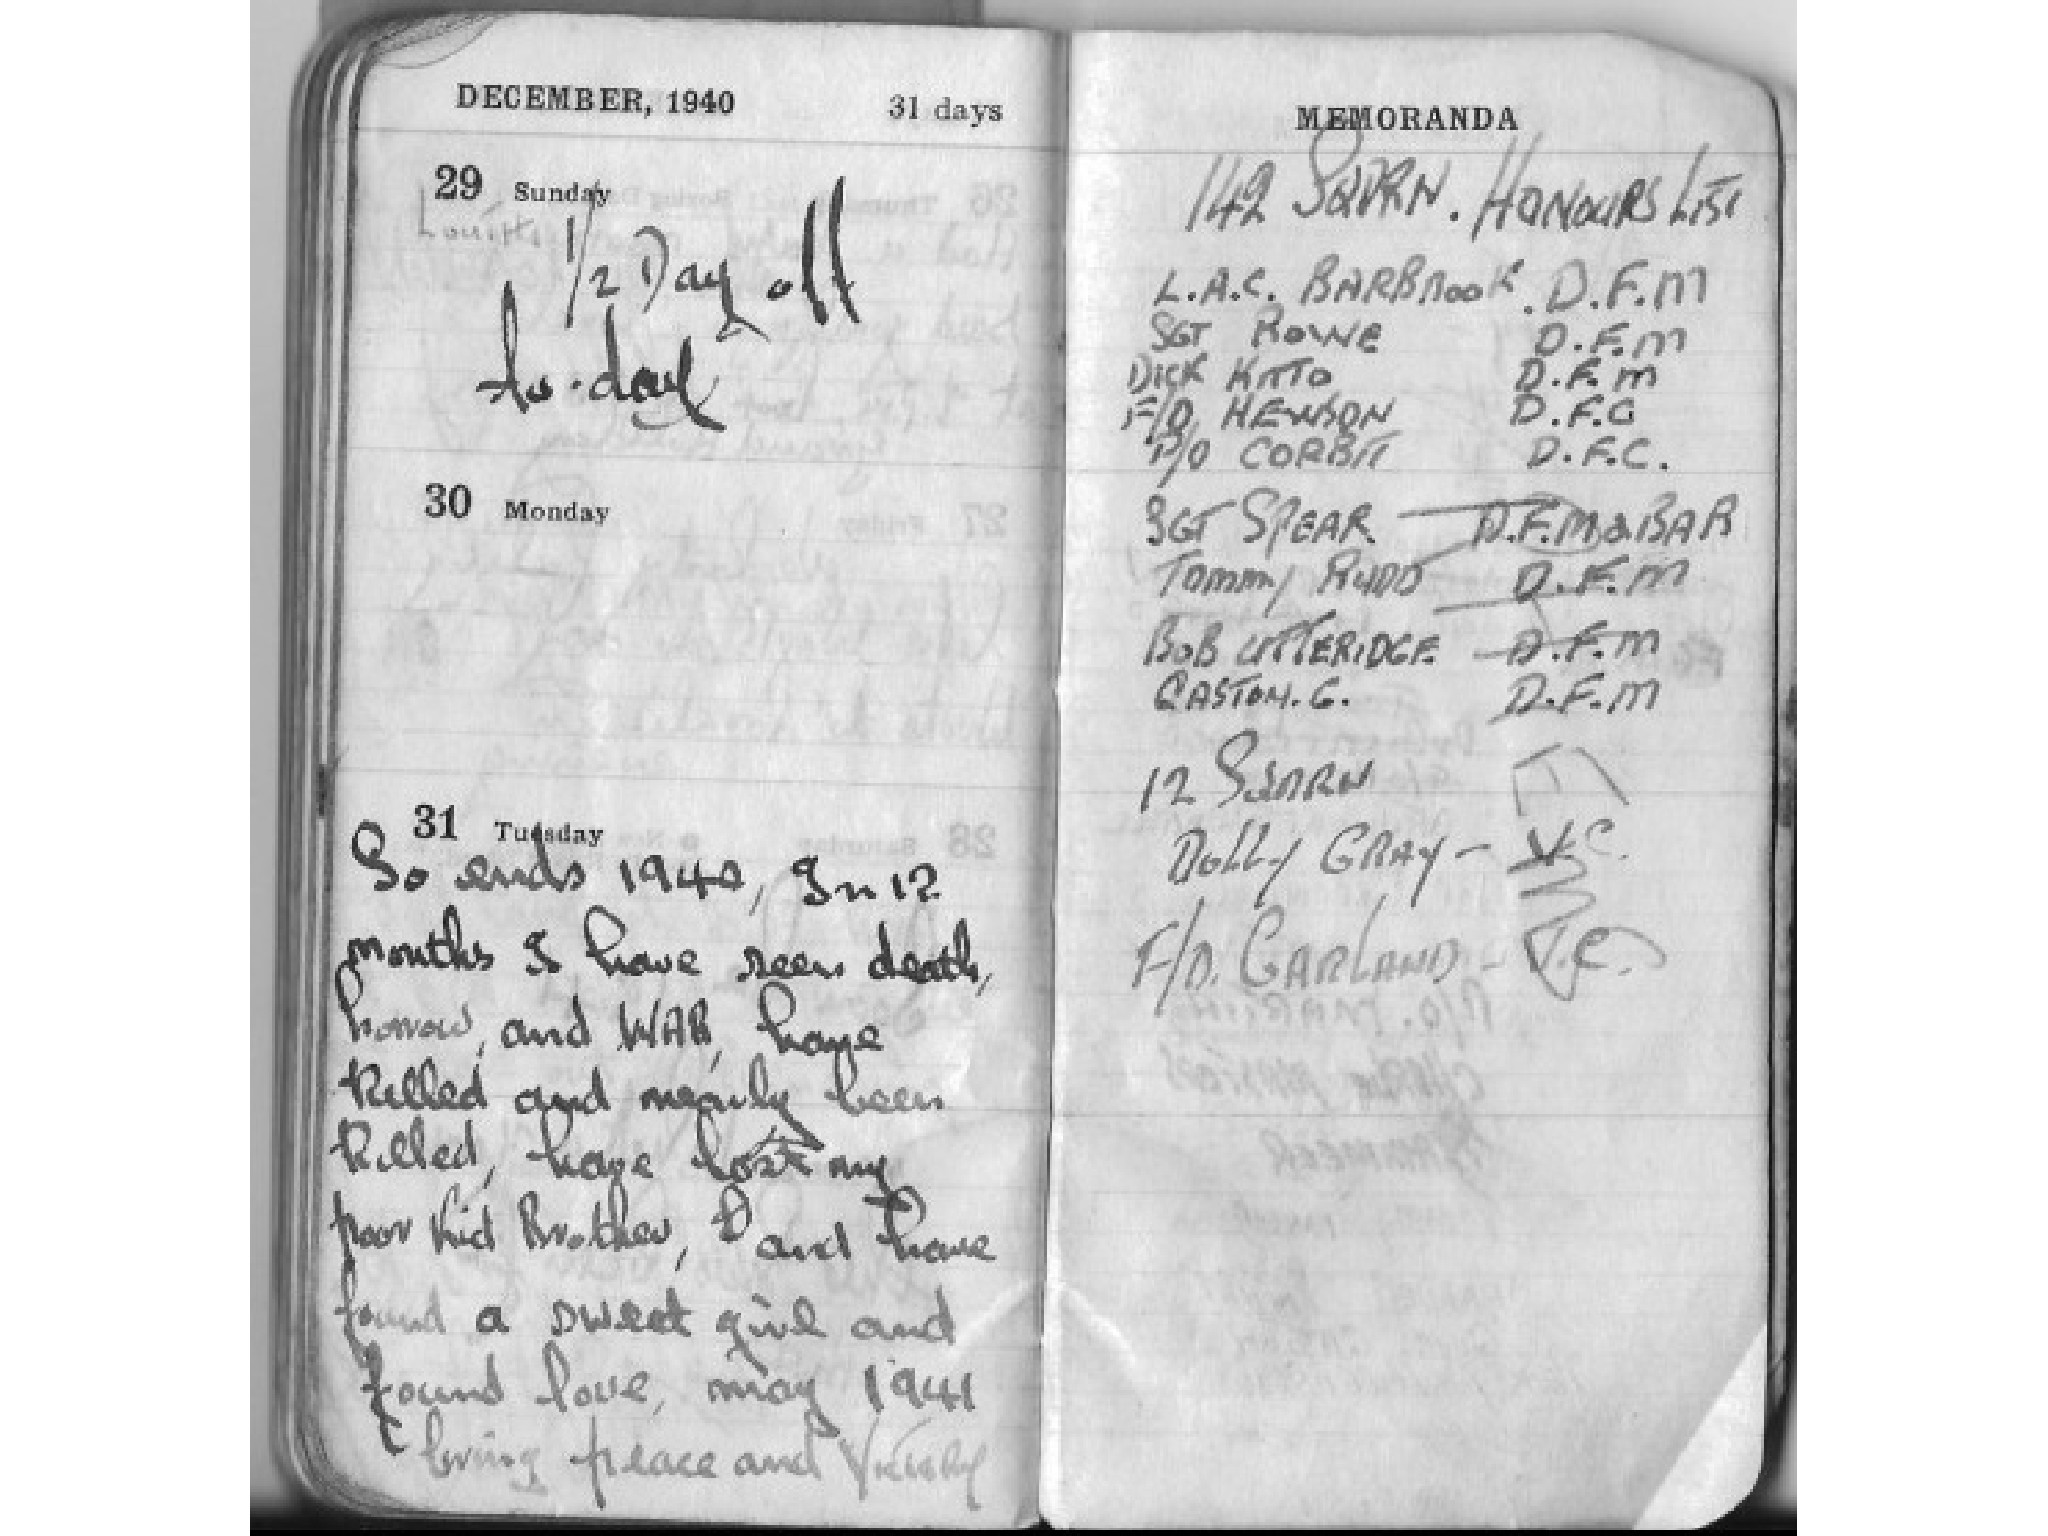 DECEMBER, 1940 31 days
29 Sunday
1/2 Day off
to-day
30 Monday
31 Tuesday
So ends 1940, In 12
months I have seen death,
horror, and WAR, have
killed and nearly been
killed, have lost my
poor kid Brother, and have
found a sweet girl and
found love, may 1941
bring peace and Victory
MEMORANDA
142 SQDRN. HONOURS LIST
L.A.C. BARBROOK. D.F.M
SGT ROWE D.F.M
DICK D.F.M
F/O. HEWSON D.F.C
P/O CORBIT D.F.C.
SGT SPEAR D.F.M & BAR
Tommy RUDD D.F.M
BOB UTTERIDGE D.F.M
GASTON. G. D.F.M
12 SQDRN
DOLLY GRAY - V.C.
F/O. GARLAND - V.C.